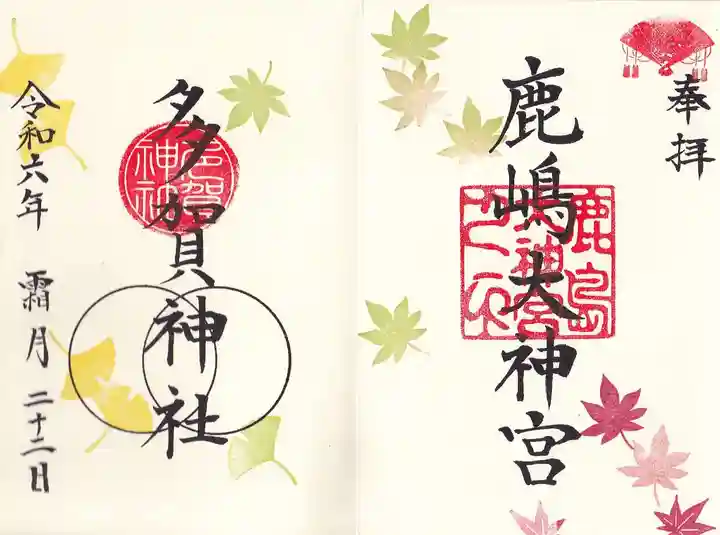 奉拝
鹿嶋大神宮
鹿島
神宮
多賀神社
多賀
神社
令和六年 霜月 二十二日